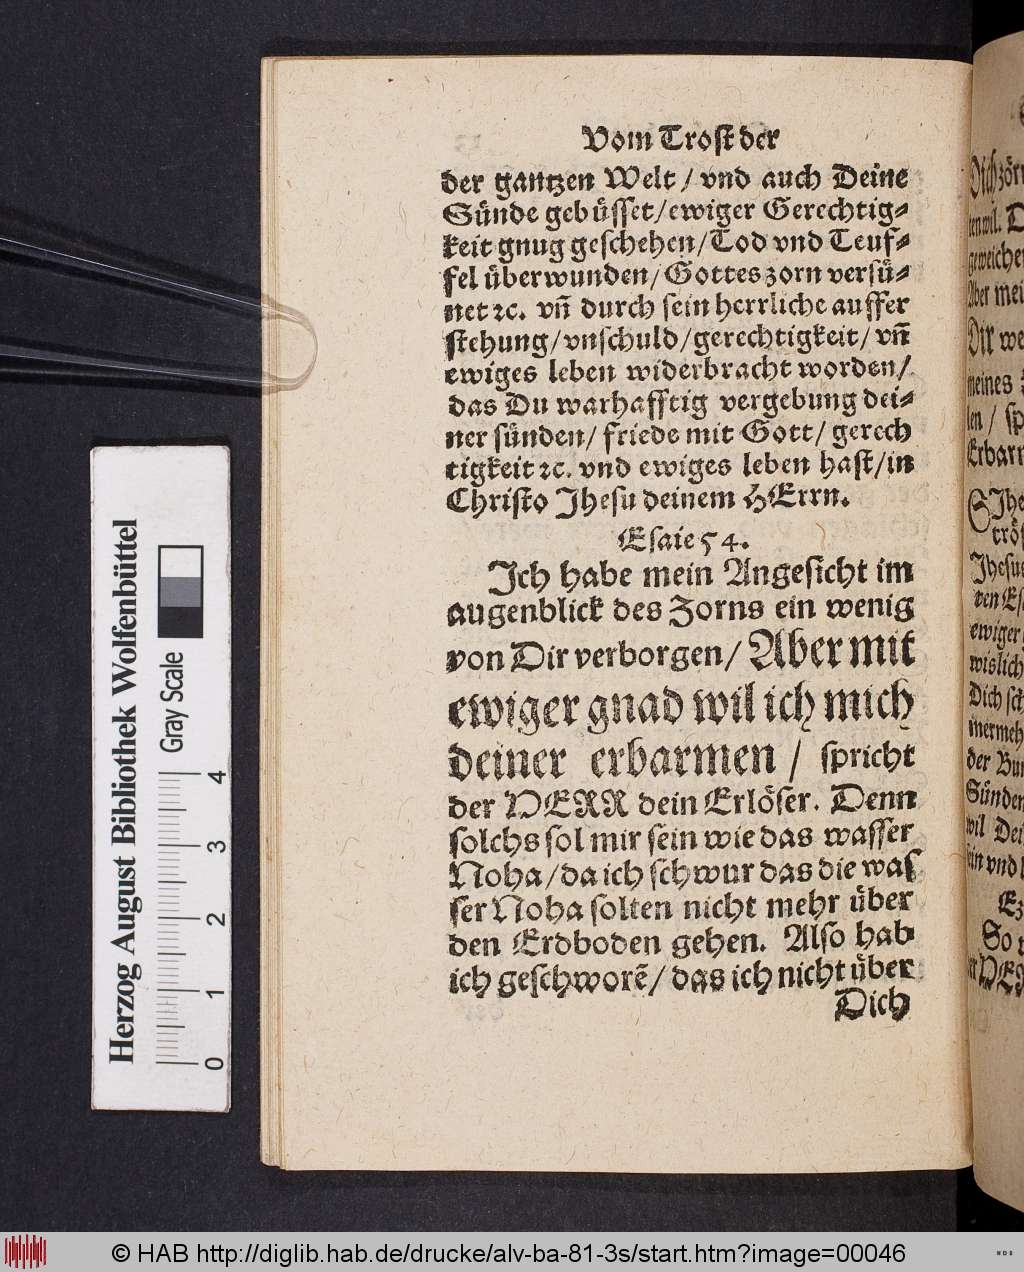 Vom Trost der
der gantzen Welt / vnd auch Deine
Sünde gebüsset/ewiger Gerechtig⸗
keit gnug geschehen/Tod vnd Teuf⸗
fel überwunden/Gottes zorn versü⸗
net ꝛc. vñ durch sein herrliche auffer
stehung/vnschuld/gerechtigkeit/vñ
ewiges leben widerbracht worden/
das Du warhafftig vergebung dei⸗
ner sünden/friede mit Gott/gerech
tigkeit ꝛc. vnd ewiges leben hast/in
Christo Jhesu deinem HErrn.
Esaie 54.
Ich habe mein Angesicht im
augenblick des Zorns ein wenig
von Dir verborgen/Aber mit
ewiger gnad wil ich mich
deiner erbarmen / spricht
der HERR dein Erlöser. Denn
solchs sol mir sein wie das wasser
Noha/da ich schwur das die was
ser Noha solten nicht mehr über
den Erdboden gehen. Also hab
ich geschworẽ/das ich nicht über
Dich
Dich zör
ten wil. D
geweichen
Aber mei
Dir we
meines
len / sp
Erbarm
Jhe
trös
Jhesus
den Es
ewiger
wislich
Dich sch
mermeh
der Bun
Sünden
wil Dei
sein vnd
Ez
So
Herzog August Bibliothek Wolfenbüttel
Gray Scale
0 1 2 3 4
© HAB http://diglib.hab.de/drucke/alv-ba-81-3s/start.htm?image=00046